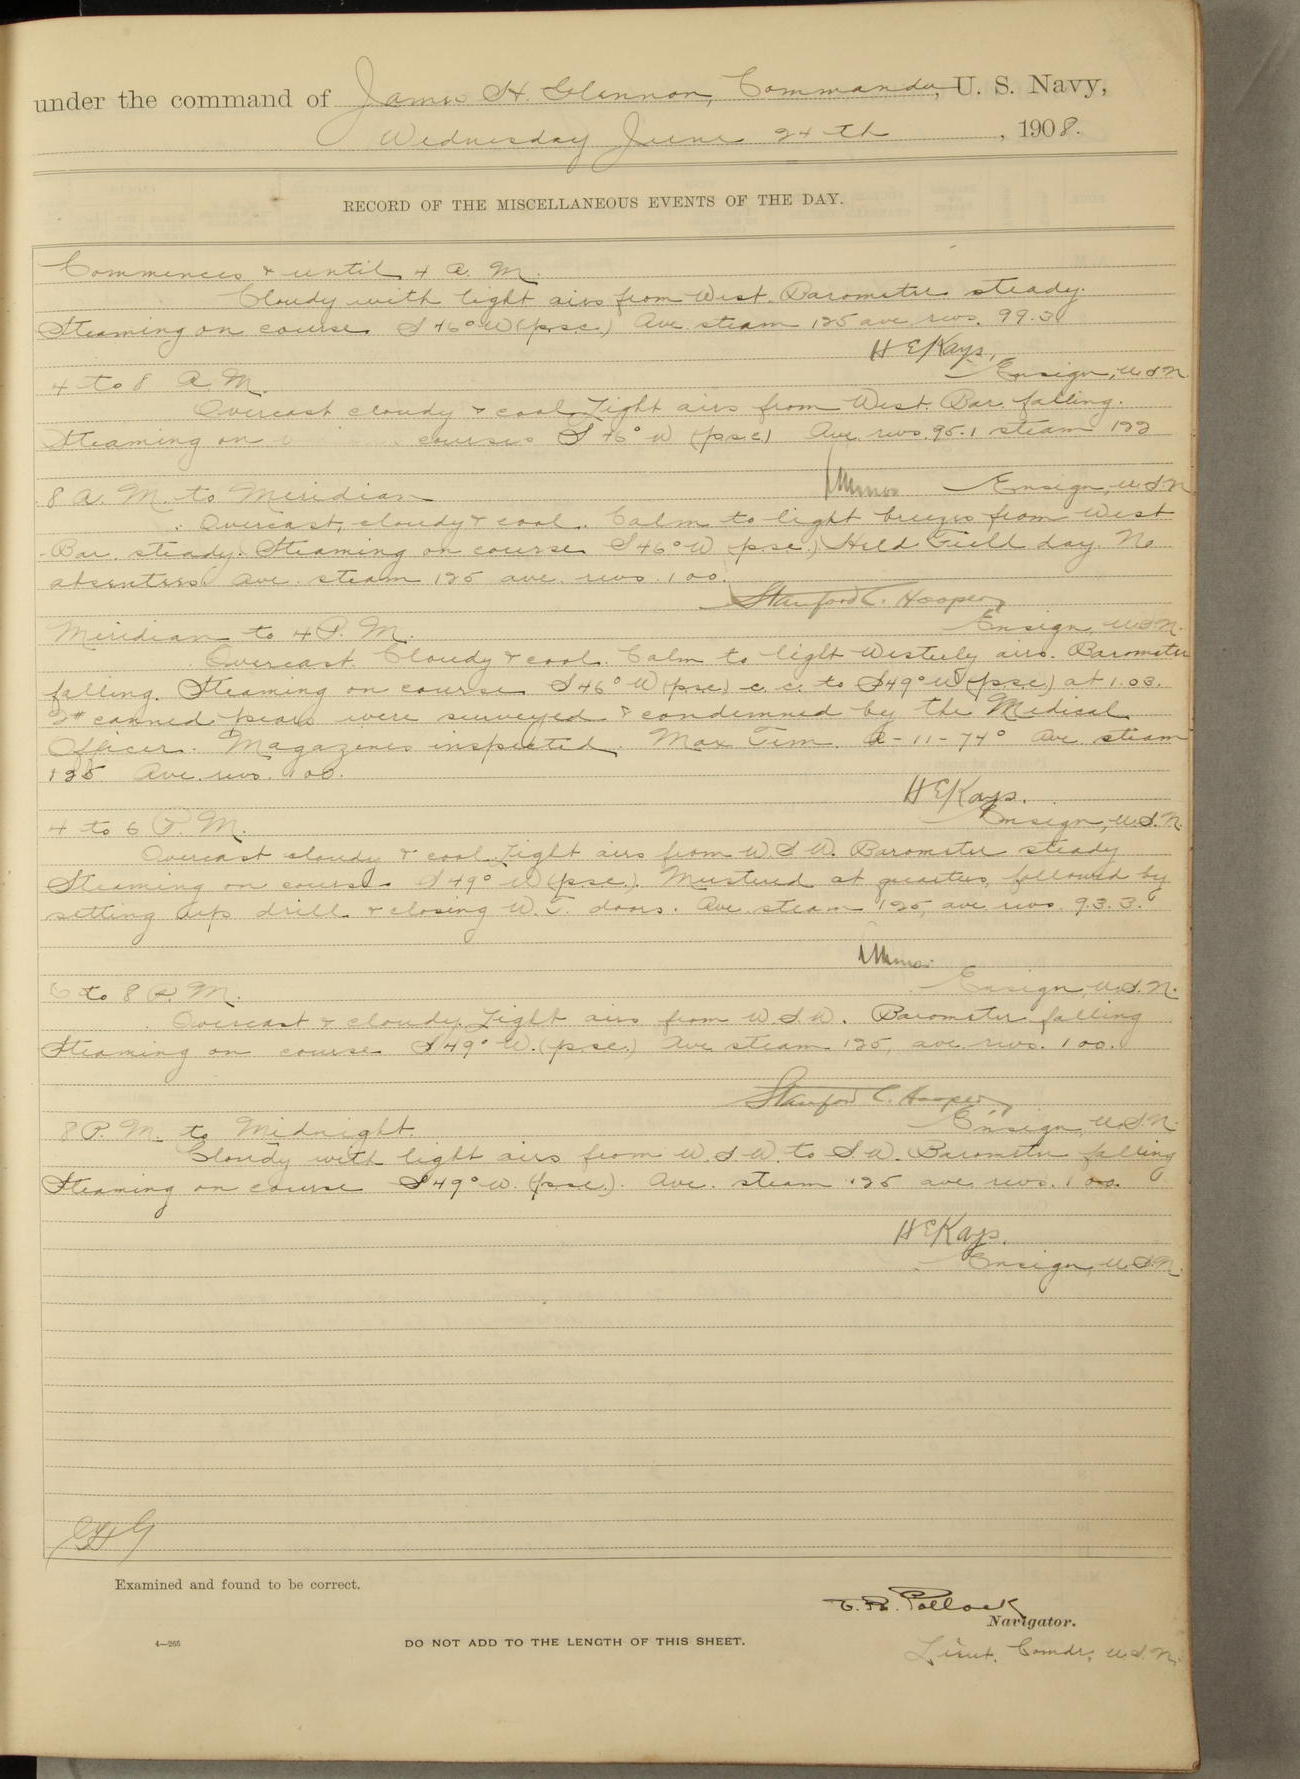 under the command of James H. Glennon, Commander, U. S. Navy,
Wednesday June 24th, 1908.
RECORD OF THE MISCELLANEOUS EVENTS OF THE DAY.
Commences & until 4 A. M.
Cloudy with light airs from West. Barometer steady.
Steaming on course S 46° W (p.s.c.) Ave. steam 125 ave revs. 99.3
H E Kays,
Ensign, U.S.N.
4 to 8 A. M.
Overcast cloudy & cool. Light airs from West. Bar. falling.
Steaming on course S 46° W (p.s.c.) Ave. revs. 95.1 steam 122
Ensign, U.S.N.
8 A. M. to Meridian
Overcast, cloudy & cool. Calm to light breezes from West
Bar. steady. Steaming on course S 46° W (p.s.c.) Held Field day. No
absentees. Ave. steam 125 ave. revs. 100.
Stanford C. Hooper
Ensign, U.S.N.
Meridian to 4 P. M.
Overcast. Cloudy & cool. Calm to light Westerly airs. Barometer
falling. Steaming on course S 46° W (p.s.c.) c. c. to S 49° W (p.s.c.) at 1.03.
2# canned pears were surveyed & condemned by the Medical
Officer. Magazines inspected. Max Tem. A-11-74° Ave. steam
125 Ave. revs. 100.
H E Kays.
Ensign, U.S.N.
4 to 6 P. M.
Overcast cloudy & cool. Light airs from W.S.W. Barometer steady
Steaming on course S 49° W (p.s.c.). Mustered at quarters, followed by
setting up drill & closing W.T. doors. Ave. steam 125, ave revs. 93.3.
Ensign, U.S.N.
6 to 8 P. M.
Overcast & cloudy. Light airs from W.S.W. Barometer falling
Steaming on course S 49° W. (p.s.c.) Ave steam 125, ave. revs. 100.
Stanford C. Hooper
Ensign, U.S.N.
8 P. M. to Midnight.
Cloudy with light airs from W.S.W. to S.W. Barometer falling
Steaming on course S 49° W. (p.s.c.). Ave. steam 125 ave revs. 100.
H E Kays.
Ensign, U.S.N.
Examined and found to be correct.
C. R. Pollock
Navigator.
4—265
DO NOT ADD TO THE LENGTH OF THIS SHEET.
Lieut. Comdr, U.S.N.